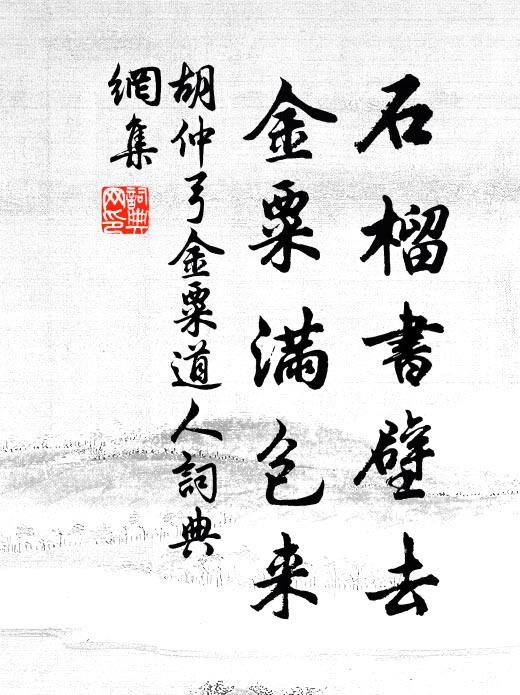 石榴書壁去
金粟滿包来
胡仲弓金粟道人詞典
網集
詞典
网印